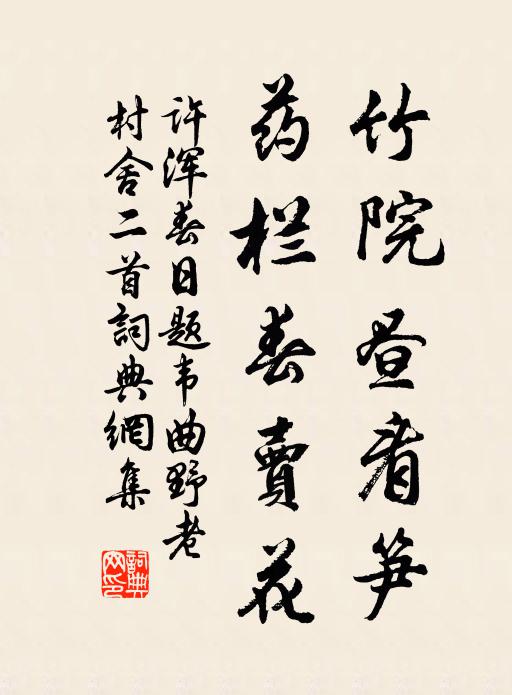 竹院昼看笋
药栏春賣花
许浑春日题韦曲野老
村舍二首詞典網集
詞典網印